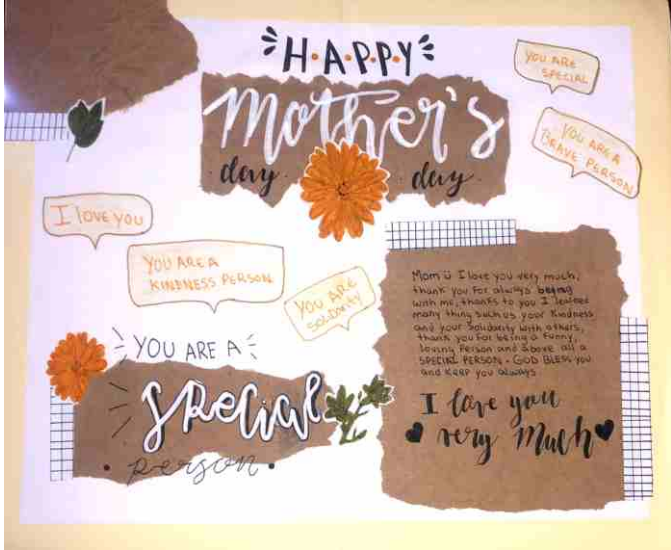 H·A·P·P·Y
Mother's
day day
YOU ARE
SPECIAL
YOU ARE A
BRAVE PERSON
I love you
YOU ARE A
KINDNESS PERSON
YOU ARE
SOLIDARITY
YOU ARE A
special
person
Mom ü I love you very much,
thank you for always being
with me, thanks to you I learned
many thing such us your Kindness
and your Solidarity with others,
thank you for being a funny,
loving Person and above all a
SPECIAL PERSON - GOD BLESS you
and Keep you always
I love you
very Much